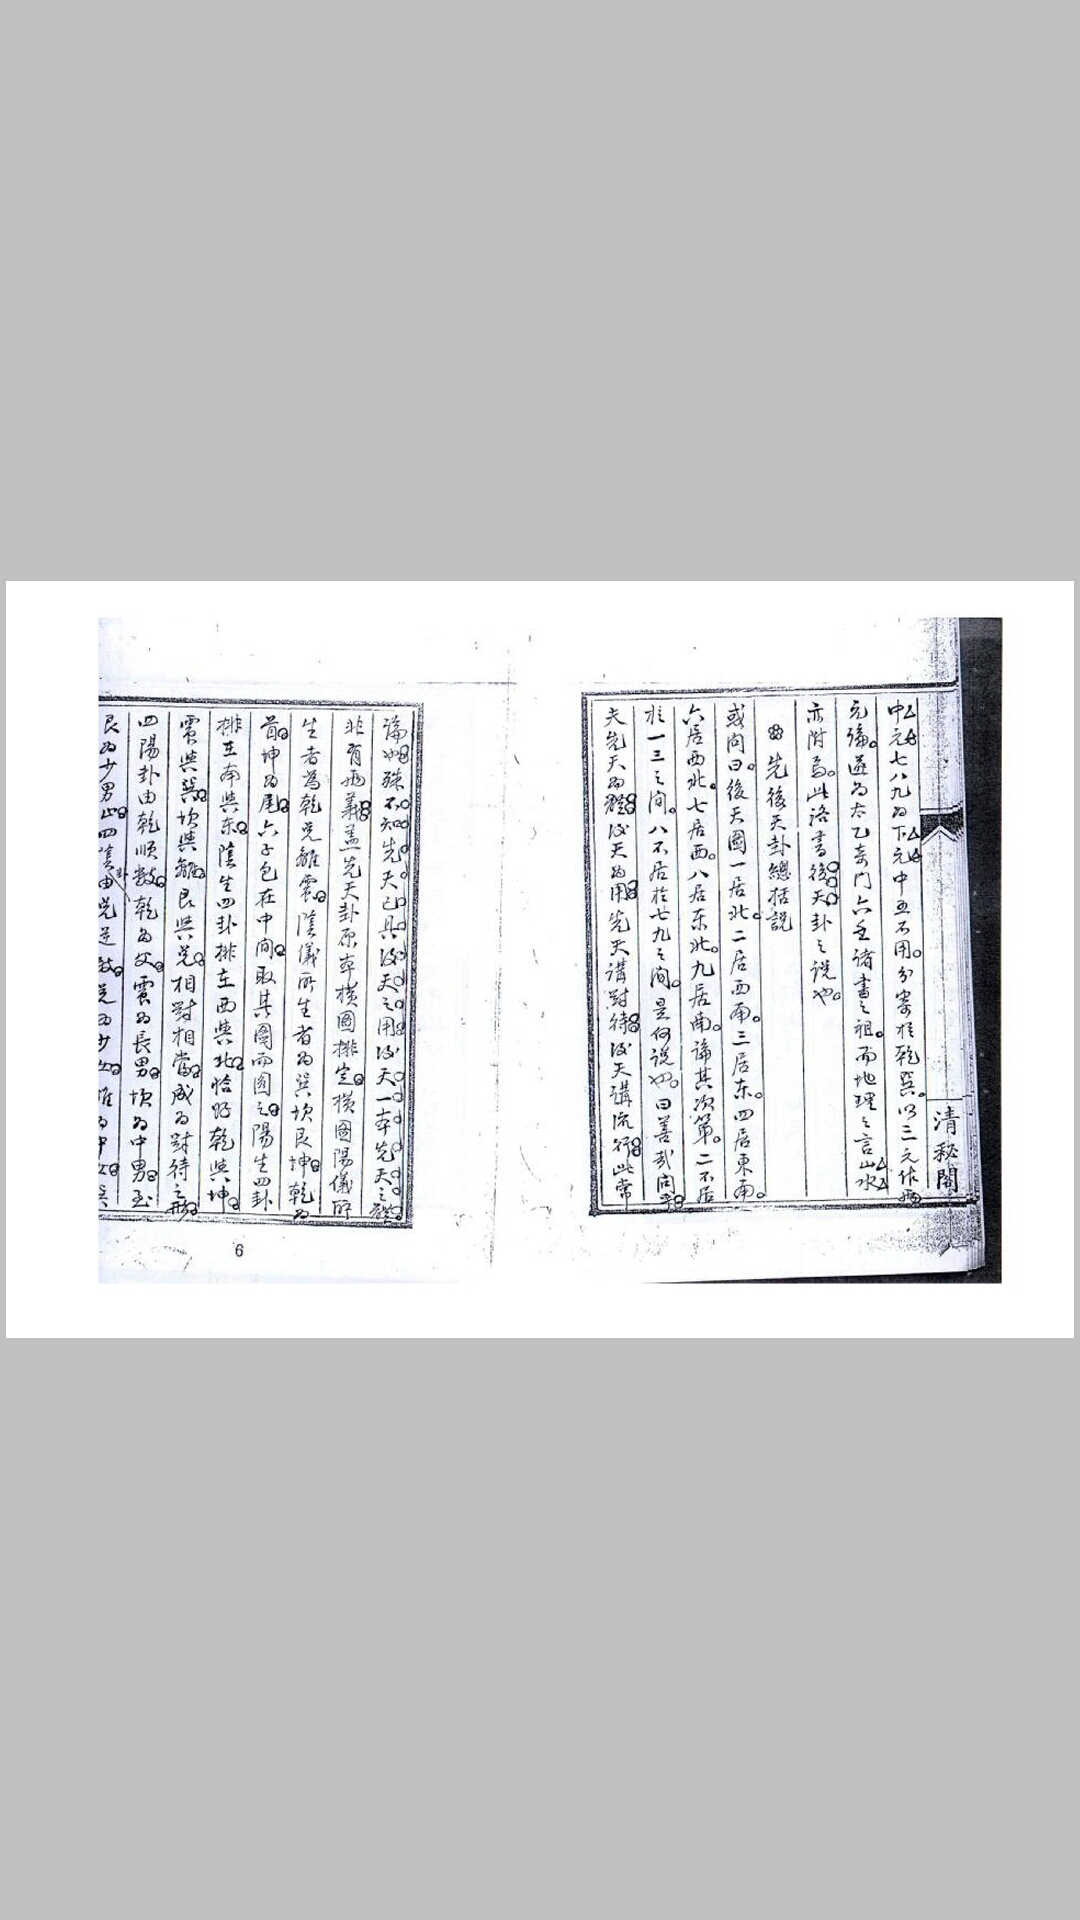 中元七八九为下元中五不用分寄於乾巽以三元作兩
元論遂为太乙奇門六壬諸書之祖而地理之言山水
亦附焉此洛書後天卦之説也
先後天卦總括説
或问曰後天圖一居北二居西南三居东四居東南
六居西北七居西八居东北九居南論其次第二不居
於一三之间八不居於七九之间是何説也曰善哉问乎
夫先天为體後天为用先天講對待後天講流行此常
論也殊不知先天已具後天之用後天一本先天之體
非有兩義盖先天卦原本横圖排定横圖陽儀所
生者為乾兑離震陰儀所生者为巽坎艮坤乾为
首坤为尾六子包在中间取其圖而圆之陽生四卦
排在南與东陰生四卦排在西與北恰好乾與坤
震與巽坎與離艮與兑相對相當成为對待之形
四陽卦由乾順數乾为父震为長男坎为中男至
艮为少男止四陰卦由兑逆数兑为少女離为中女巽
清秘閣
6